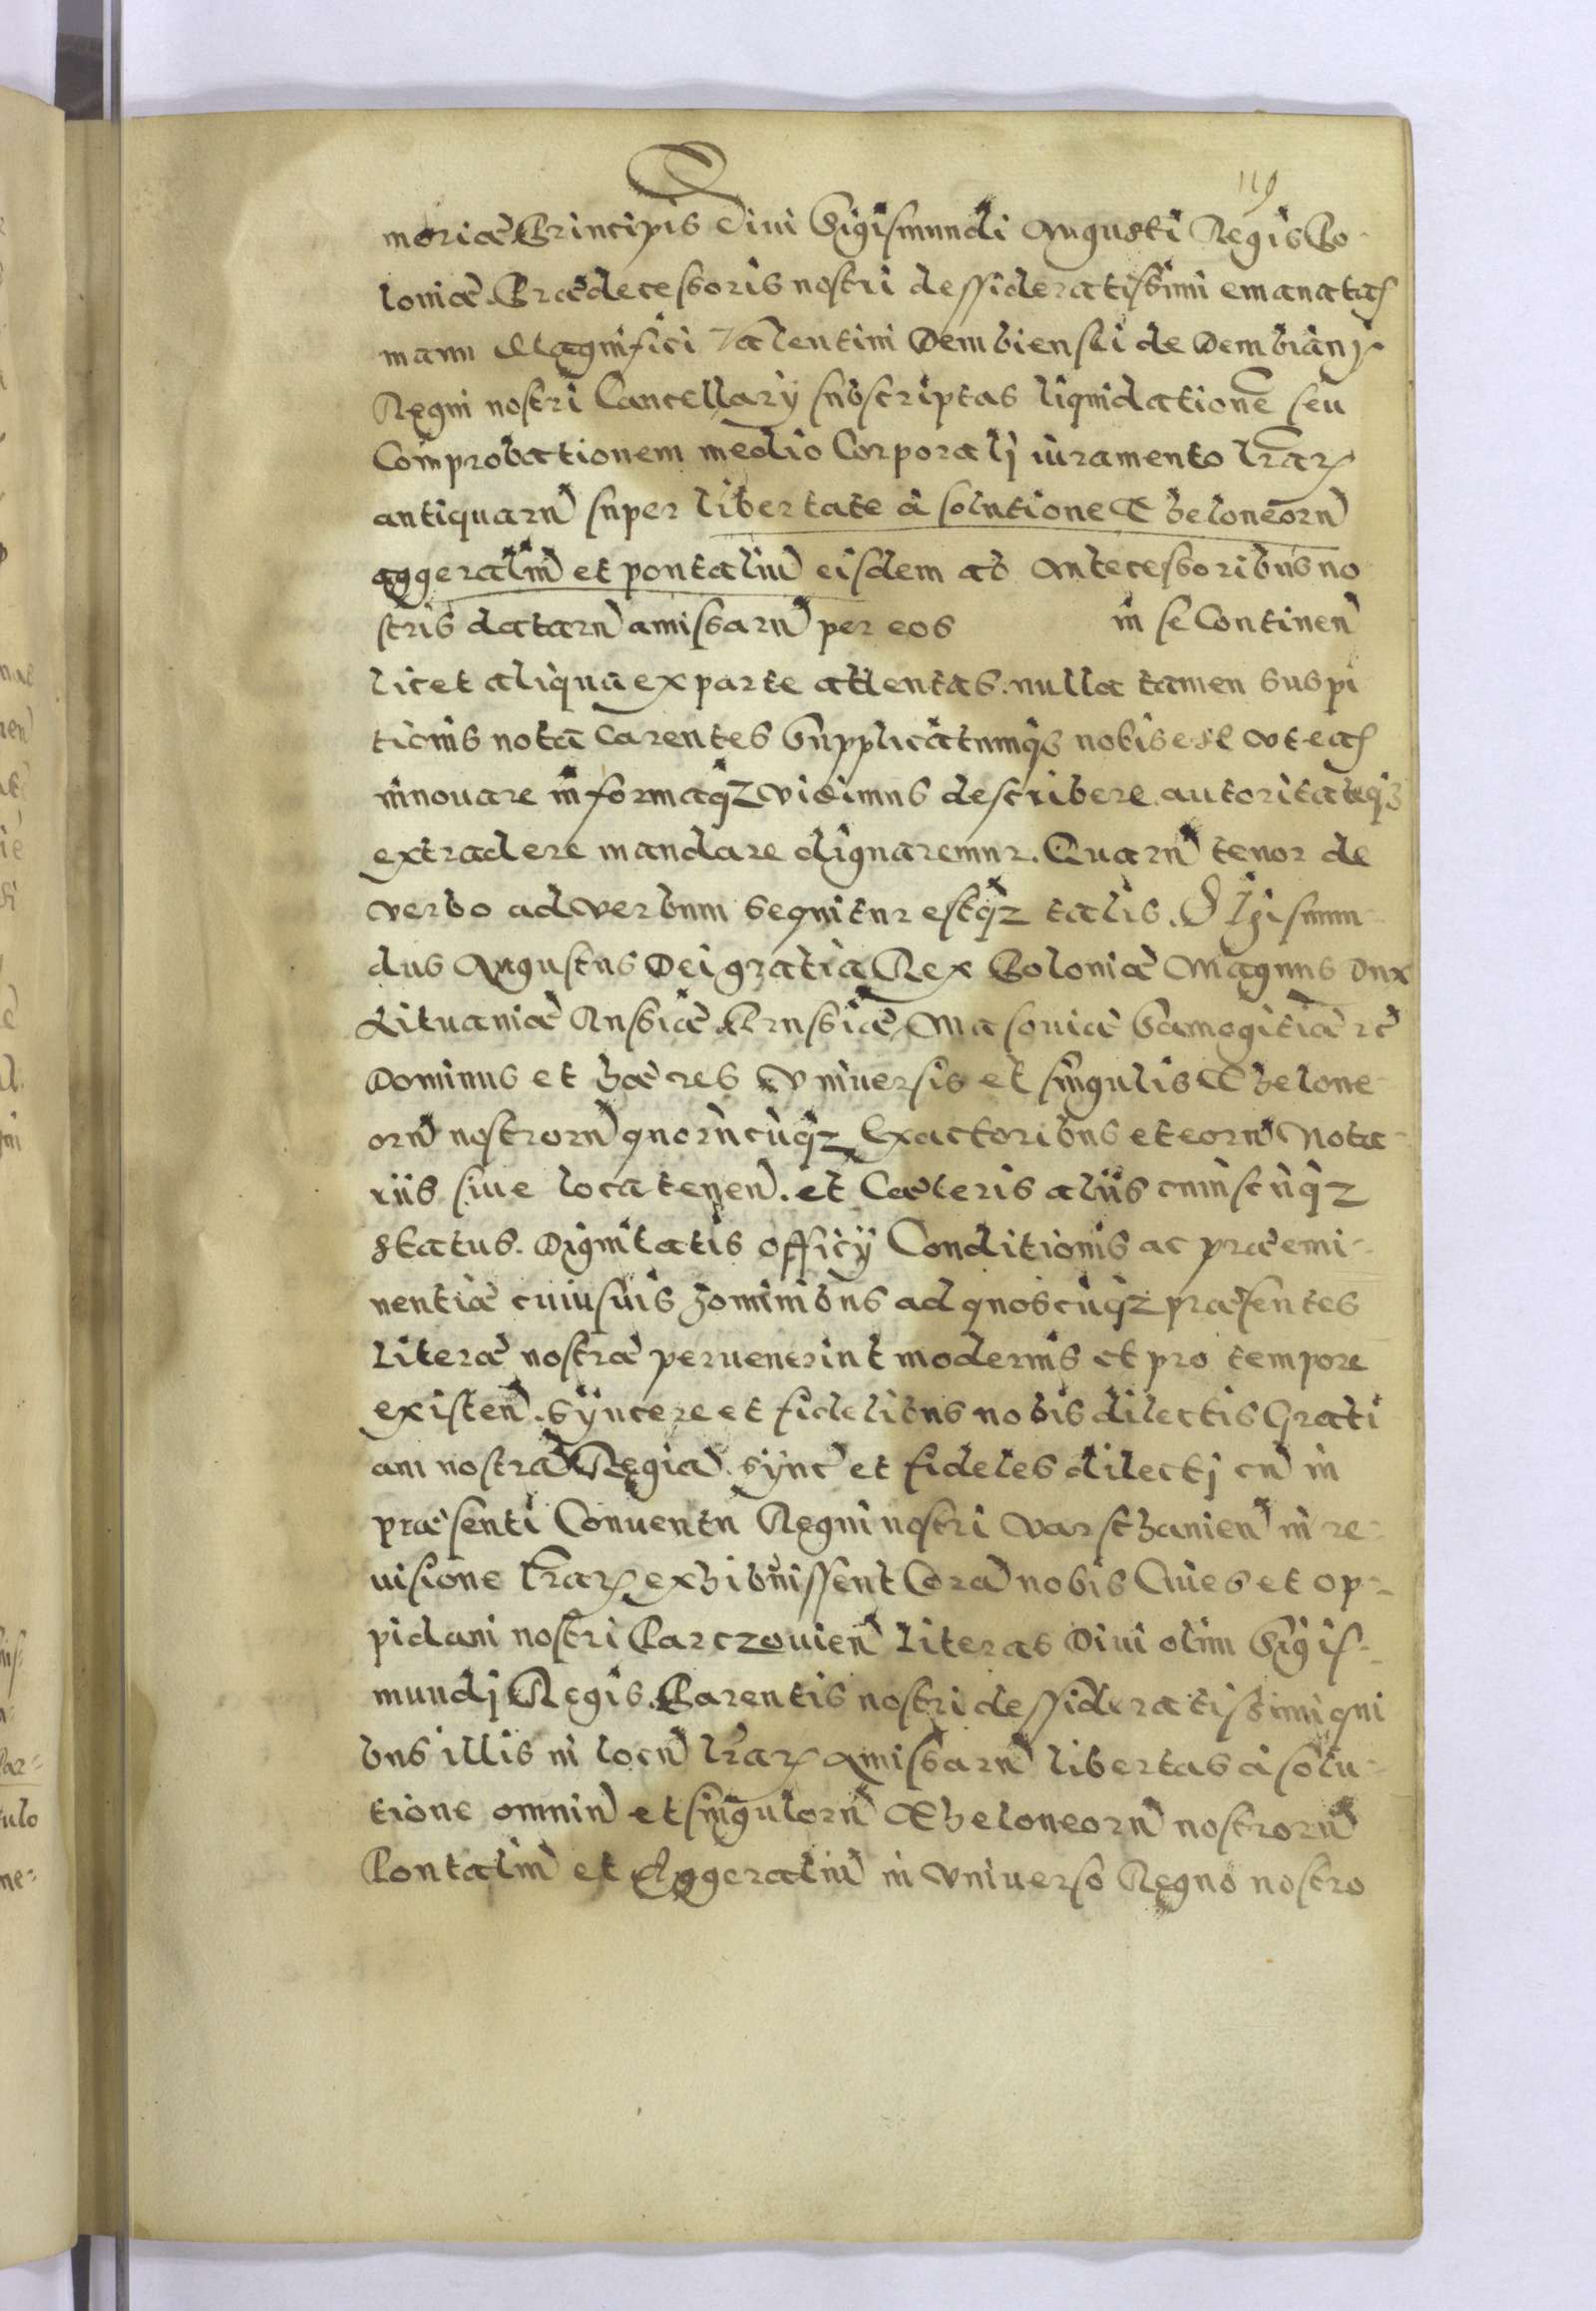 119
moriæ Principis Diui Sigismundi Augusti Regis Po-
loniæ. Prædecessoris nostri dessideratissimi emanatas
manu Magnifici Valentini Dembienski de Dembiani
Regni nostri Cancellarÿ subscriptas liquidationē seu
Comprobationem medio Corporalj iuramento lrarꝝ
antiquarũ super libertate à solutione Theloneorũ
aggeraliũ et pontaliũ eisdem ab Antecessoribus no
stris datarũ amissarũ per eos in se Continen̄
licet aliqua ex parte attentas. nulla tamen suspi
tionis nota Carentes Supplicatumqȝ nobis est vt eas
innouare in formaqȝ vidimus describere autoritateqȝ
extradere mandare dignaremur. Quarũ tenor de
verbo ad verbum sequitur estqȝ talis. SIgismun-
dus Augustus Dei gratia Rex Poloniæ Magnus Dux
Lituaniæ Russiæ Prussiæ Masouiæ Samogitiæ ꝛc̄
Dominus et hæres Vniuersis et singulis Thelone-
orũ nostrorũ quorũcũqȝ Exactoribus et eorũ Nota-
riis siue locatenen̄. et Cæteris aliis cuiuscũqȝ
status. Dignitatis officÿ Conditionis ac præemi-
nentiæ cuiusuis hominibus ad quoscũqȝ præsentes
literæ nostræ peruenerint modernis et pro tempore
existen̄. sÿncere et fidelibus nobis dilectis Grati
am nostrã Regiã. sÿnc̄ et fideles dilectj cũ in
præsenti Conuentu Regni nostri Varschauien̄ in re-
uisione lrarꝝ exhibuissent Corã nobis Ciues et op-
pidani nostri Parczouien̄ literas Diui olim Sigis-
mundj Regis. Parentis nostri dessideratissimi qui
bus illis in locũ lrarꝝ Amissarũ libertas à solu-
tione omniũ et singulorũ Theloneorũ nostrorũ
Pontaliũ et Aggeraliũ in vniuerso Regno nostro